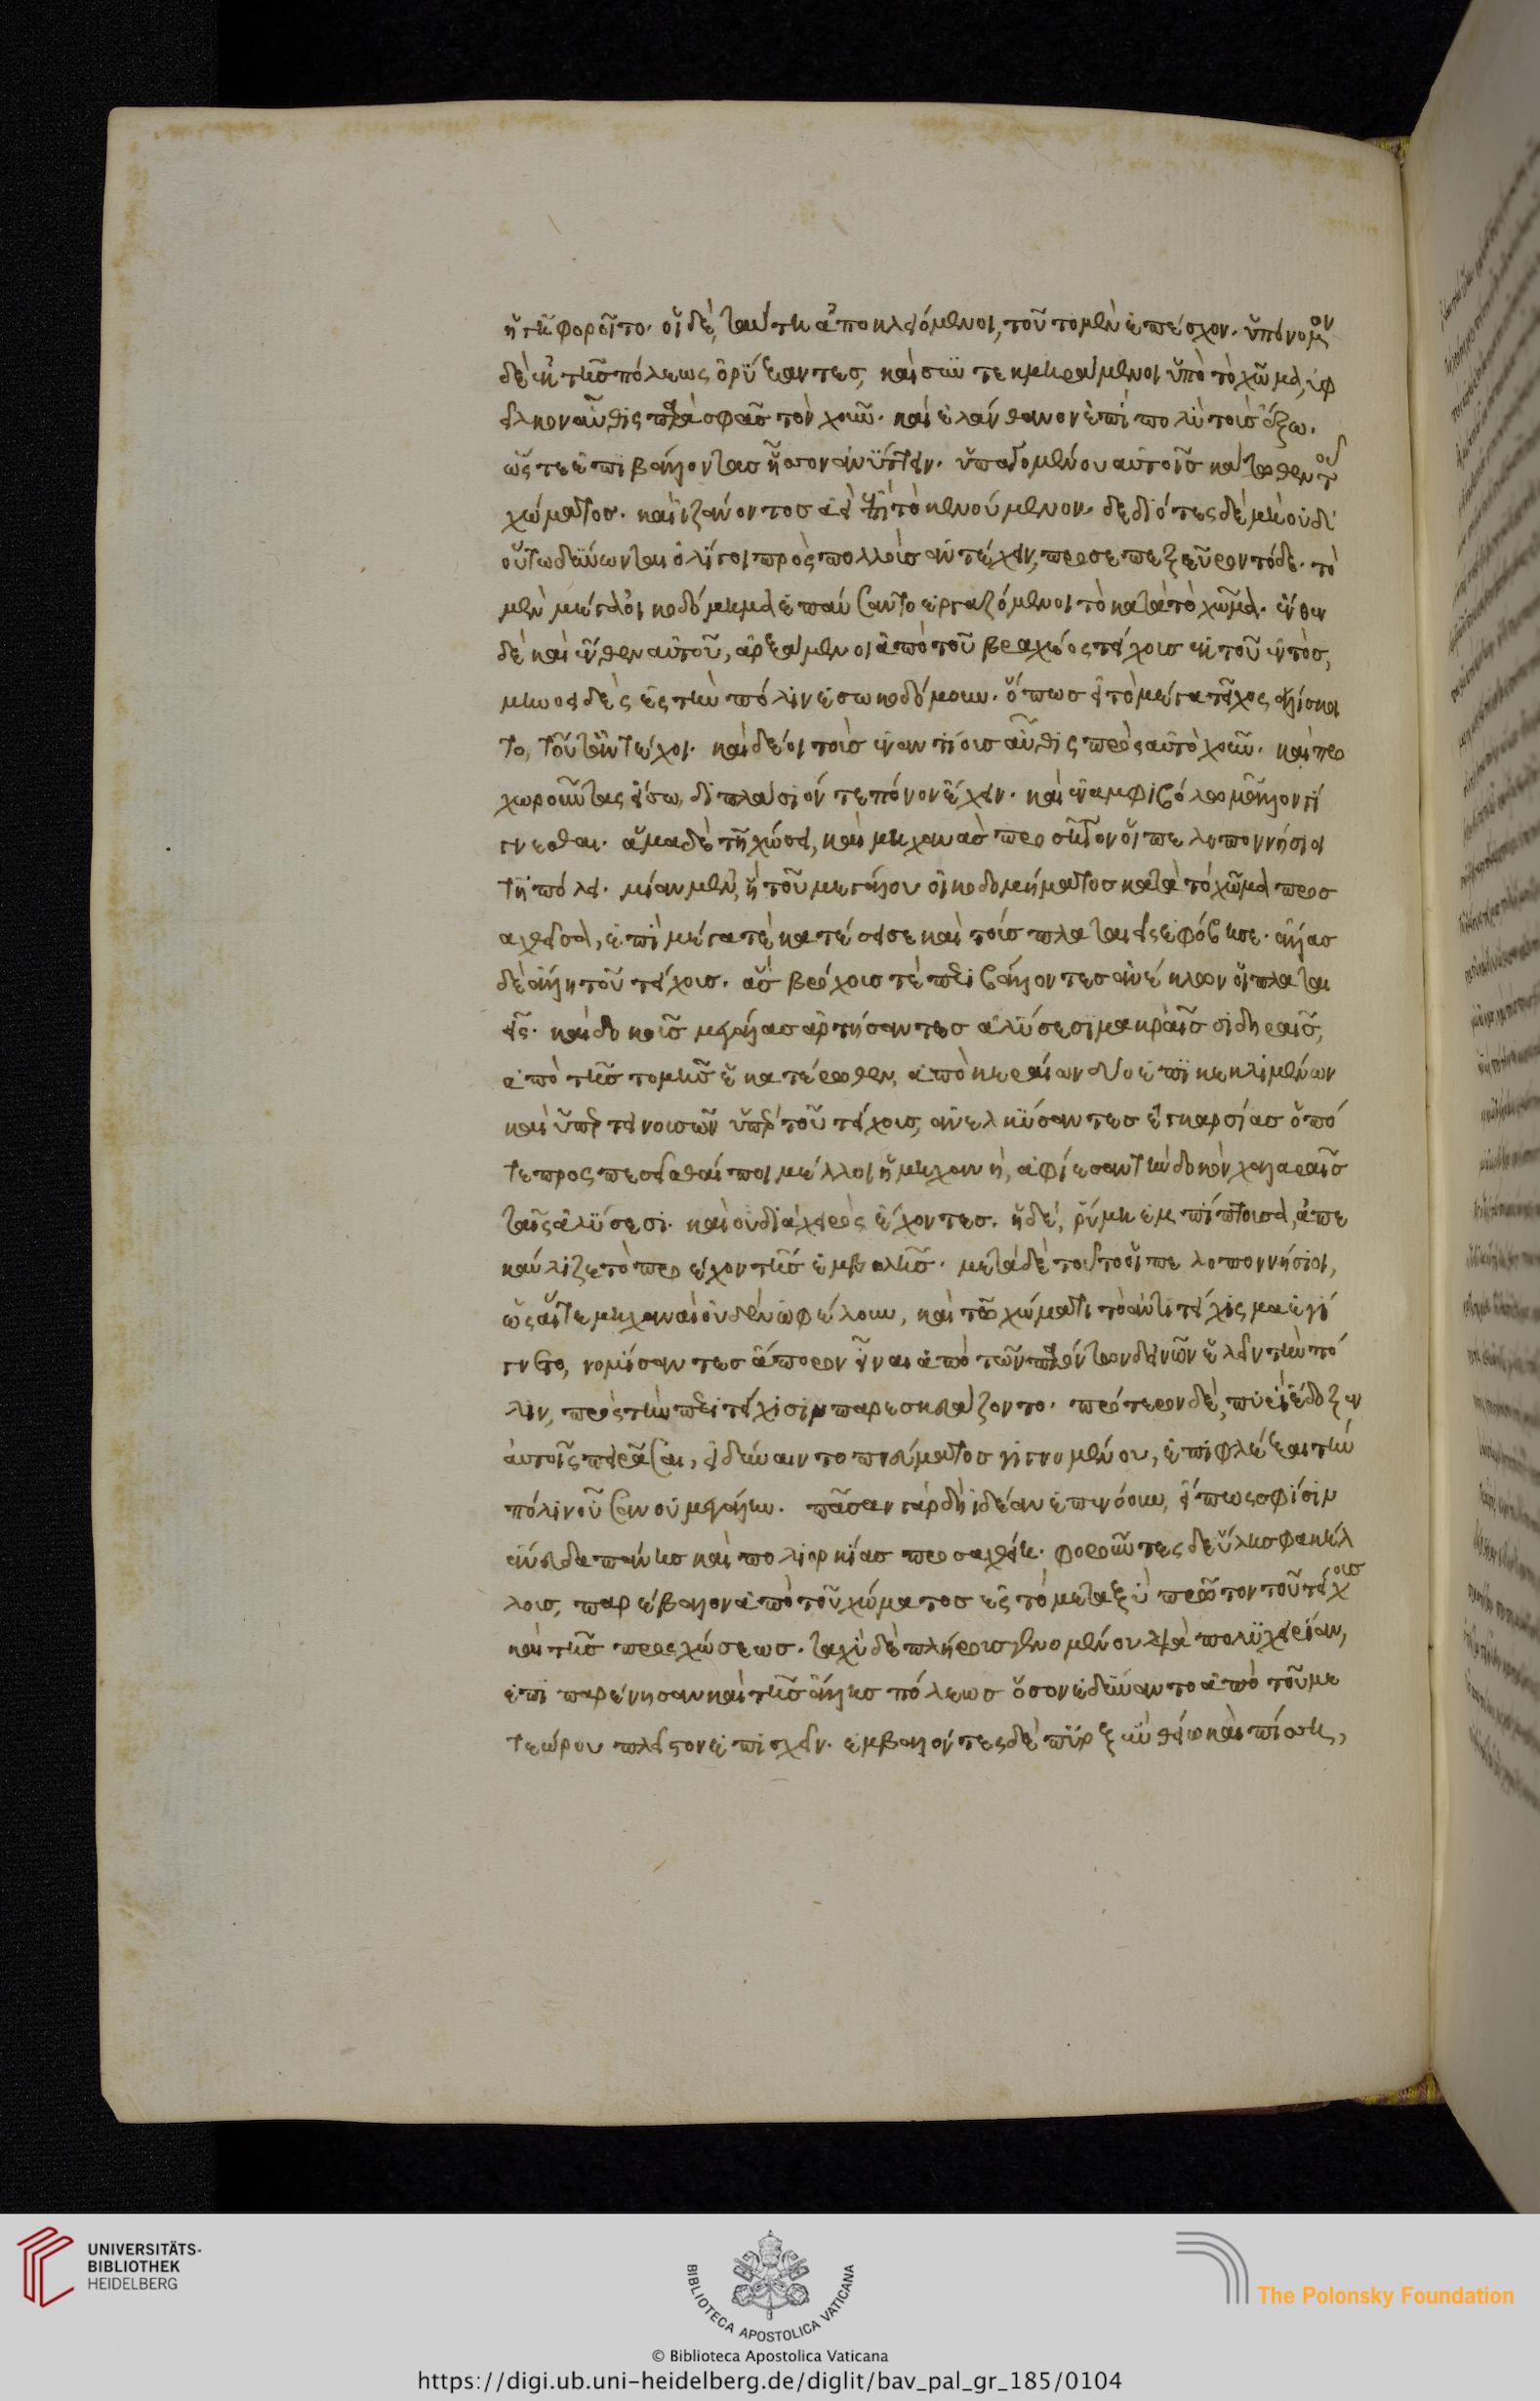 ἡ γῆ φοροῖτο. οἱ δὲ, ταύτη ἀποκλειόμενοι, τοῦτο μὲν ἐπέσχον. ὑπόνομον
δὲ ἐκ τῆς πόλεως ὀρύξαντες, καὶ συντεκμηράμενοι ὑπὸ τὸ χῶμα, ὑφ
εῖλκον αὖθις παρὰ σφᾶς τὸν χοῦν. καὶ ἐλάνθανον ἐπὶ πολὺ τοὺς ἔξω.
ὥστε ἐπιβάλλοντας ἧσσον ἀνύττειν. ὑπαγομένου αὐτοῖς κάτωθεν τοῦ
χώματος. καὶ ἱζάνοντος ἀεὶ ἐπὶ τὸ κενούμενον. δεδιότες δὲ μὴ οὐδ'
οὕτω δύνωνται ὀλίγοι πρὸς πολλοὺς ἀντέχειν, προσεπεξεῦρον τόδε. τὸ
μὲν μέγα οἰκοδόμημα ἐπαύσαντο ἐργαζόμενοι τὸ κατὰ τὸ χῶμα. ἔνθεν
δὲ καὶ ἔνθεν αὐτοῦ, ἀρξάμενοι ἀπὸ τοῦ βραχέος τείχους ἐκ τοῦ ἐντὸς,
μηνοειδὲς ἐς τὴν πόλιν ἐσωκοδόμουν. ὅπως εἰ τὸ μέγα τεῖχος ἁλίσκοι
το, τοῦτ' ἀντέχοι. καὶ δέοι τοὺς ἐναντίους αὖθις πρὸς αὐτὸ χοῦν. καὶ προ
χωροῦντας εἴσω, διπλάσιόν τε πόνον ἔχειν. καὶ ἐν ἀμφιβόλω μᾶλλον γί
γνεσθαι. ἅμα δὲ τῆ χώσει, καὶ μηχανὰς προσῆγον οἱ πελοποννήσιοι
τῆ πόλει. μίαν μὲν, ἣ τοῦ μεγάλου οἰκοδομήματος κατὰ τὸ χῶμα προσ
αχθεῖσα, ἐπὶ μέγα τὲ κατέσεισε καὶ τοὺς πλαταιεῖς ἐφόβησε. ἄλλας
δὲ ἄλλη τοῦ τείχους. ἃς βρόχους τὲ περιβάλλοντες ἀνέκλων οἱ πλαται
εῖς. καὶ δοκοὺς μεγάλας ἀρτήσαντες ἁλύσεσι μακραῖς σιδηραῖς,
ἀπὸ τῆς τομῆς ἑκατέρωθεν, ἀπὸ κεραίων δύο ἐπικεκλιμένων
καὶ ὑπερτεινουσῶν ὑπὲρ τοῦ τείχους, ἀνελκύσαντες ἐγκαρσίας ὁπό
τε προσπεσεῖσθαί ποι μέλλοι ἡ μηχανὴ, ἀφίεσαν τὴν δοκὸν χαλαραῖς
ταῖς ἁλύσεσι. καὶ οὐ διὰ χειρὸς ἔχοντες. ἡ δὲ, ῥύμη ἐμπίπτουσα, ἀπε
καύλιζε τὸ προέχον τῆς ἐμβολῆς. μετὰ δὲ τοῦτο οἱ πελοποννήσιοι,
ὡς αἵ τε μηχαναὶ οὐδὲν ὠφέλουν, καὶ τῶ χώματι τὸ ἀντιτείχισμα ἐγί
γνετο, νομίσαντες ἄπορον εἶναι ἀπὸ τῶν παρόντων δεινῶν ἑλεῖν τὴν πό
λιν, πρὸς τὴν περιτείχισιν παρεσκευάζοντο. πρότερον δὲ, πυρὶ ἔδοξεν
αὐτοῖς πειρᾶσαι, εἰ δύναιντο πνεύματος γιγνομένου, ἐπιφλέξαι τὴν
πόλιν οὖσαν οὐ μεγάλην. πᾶσαν γὰρ δὴ ἰδέαν ἐπενόουν, εἴ πως σφίσιν
ἄνευ δαπάνης καὶ πολιορκίας προσαχθείη. φοροῦντες δὲ ὕλης φακέλ
λους, παρέβαλλον ἀπὸ τοῦ χώματος ἐς τὸ μεταξὺ πρῶτον τοῦ τείχους
καὶ τῆς προσχώσεως. ταχὺ δὲ πλήρους γενομένου διὰ πολυχειρίαν,
ἐπιπαρένησαν καὶ τῆς ἄλλης πόλεως ὅσον ἐδύναντο ἀπὸ τοῦ με
τεώρου πλεῖστον ἐπισχεῖν. ἐμβαλόντες δὲ πῦρ ξὺν θείω καὶ πίσση,
UNIVERSITÄTS-
BIBLIOTHEK
HEIDELBERG
BIBLIOTECA APOSTOLICA VATICANA
The Polonsky Foundation
© Biblioteca Apostolica Vaticana
https://digi.ub.uni-heidelberg.de/diglit/bav_pal_gr_185/0104